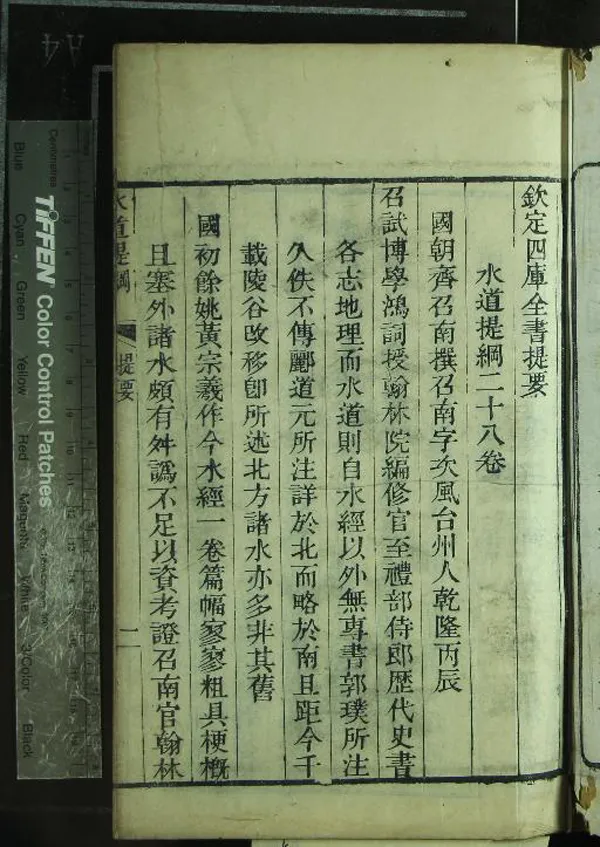 欽定四庫全書提要
水道提綱二十八卷
國朝齊召南撰召南字次風台州人乾隆丙辰
召試博學鴻詞授翰林院編修官至禮部侍郎歷代史書
各志地理而水道則自水經以外無專書郭璞所注
久佚不傳酈道元所注詳於北而略於南且距今千
載陵谷改移卽所述北方諸水亦多非其舊
國初餘姚黃宗羲作今水經一卷篇幅寥寥粗具梗槪
且塞外諸水頗有舛譌不足以資考證召南官翰林
水道提綱 提要 一
Centimetres
TIFFEN Color Control Patches
Blue Cyan Green Yellow Red Magenta White 3/Color Black
A4